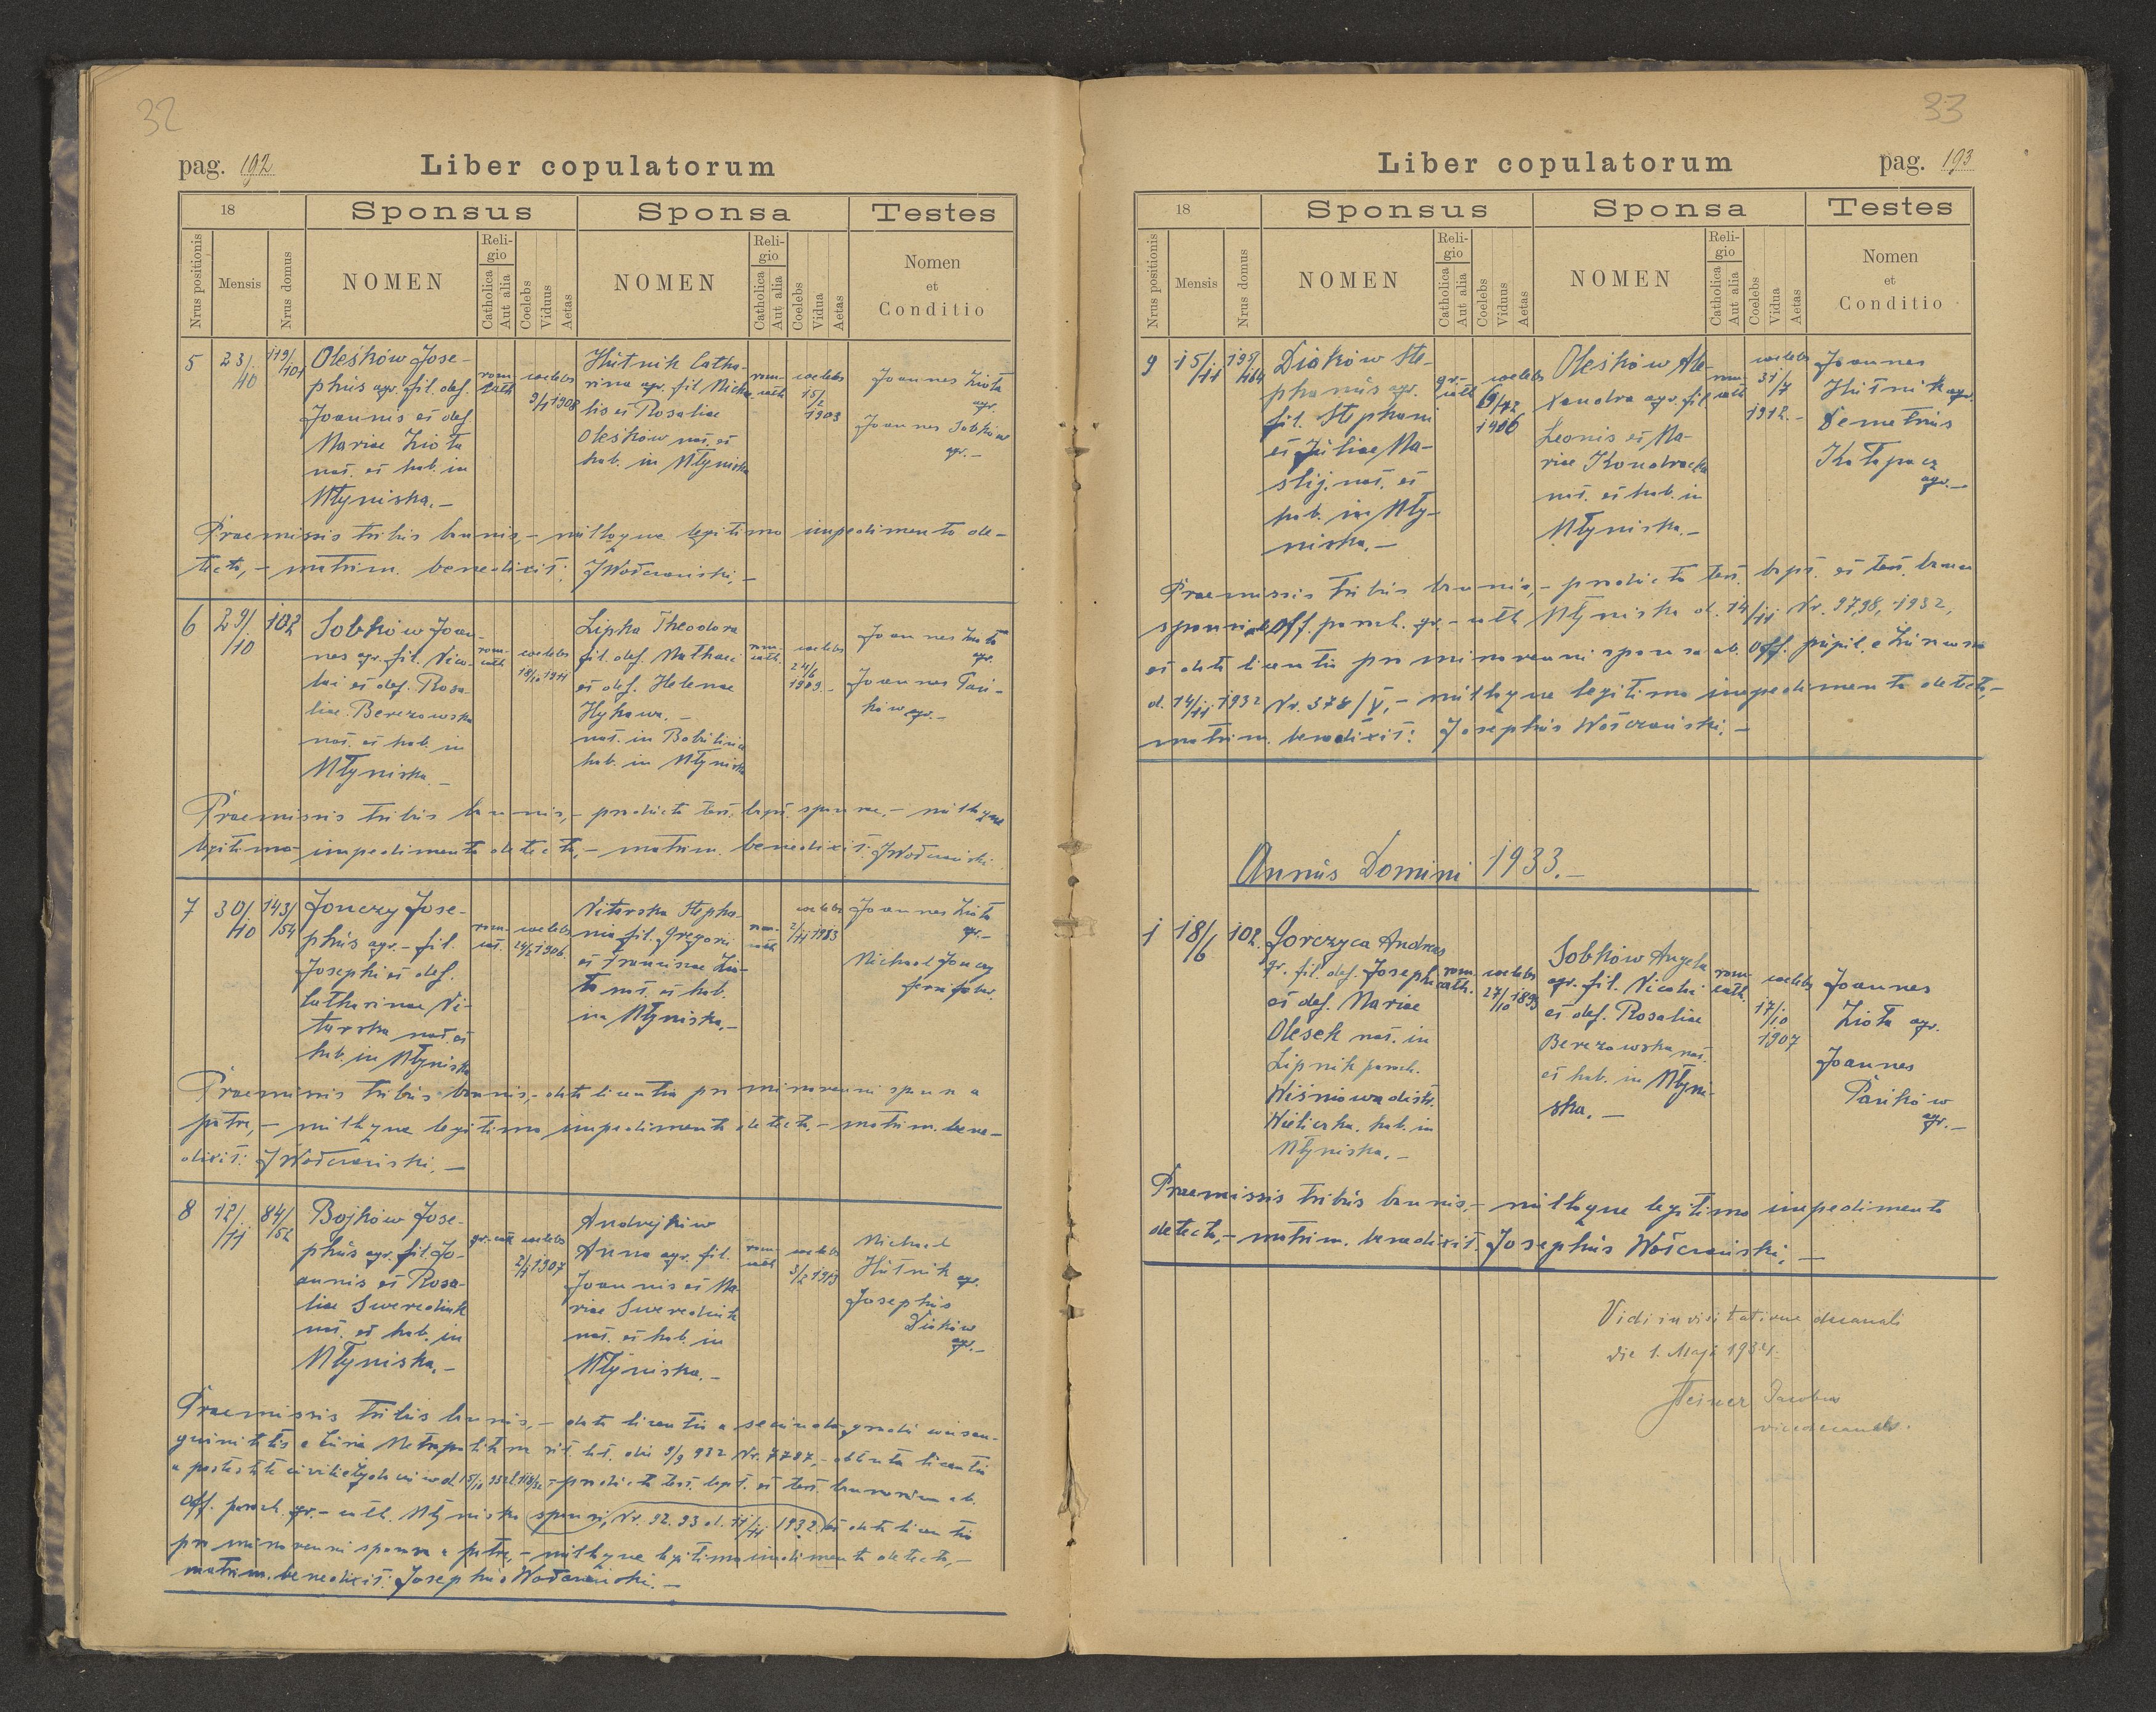 32
pag. 192
Liber copulatorum
18
Sponsus
Sponsa
Testes
Nrus positionis
Mensis
Nrus domus
NOMEN
Religio
Catholica
Aut alia
Coelebs
Viduus
Aetas
NOMEN
Religio
Catholica
Aut alia
Coelebs
Vidua
Aetas
Nomen
et
Conditio
5
23/10
119/101
Oleśków Jose-
phus agr. fil. def.
Joannis et def.
Mariae Zioła
nat. et hab. in
Młyniska.-
rom. cath
coelebs
9/1 1908
Hutnik Catha-
rina agr. fil. Micha-
lis et Rosaliae
Oleśków nat. et
hab. in Młyniska
rom. cath
coelebs
15/2
1903
Joannes Zioła
agr.
Joannes Sobków
agr.-
Praemissis tribus bannis,- nulloque legitimo impedimento de-
tecto,- matrim. benedixit:
6
29/10
102
Sobków Joan-
nes agr. fil. Nico-
lai et def. Rosa-
liae Berezowska
nat. et hab. in
Młyniska.-
rom. cath
coelebs
18/10 1911
Lipka Theodora
fil. def. Mathaei
et def. Helenae
Hykawa.-
nat. in
hab. in Młyniska
rom. cath.
coelebs
24/6
1909.-
Joannes Zioła
agr.
Joannes Pań-
ków agr.-
Praemissis tribus bannis,- producto test. bapt. sponsae,- nulloque
legitimo impedimento detecto,- matrim. benedixit:
7
30/10
143/54
Jonczy Jose-
phus agr.- fil.
Josephi et def.
Catharinae Vi-
tarska nat. et
hab. in Młyniska
rom. cat.
coelebs
24/2 1906
Vitarska Stepha-
nia fil. Gregorii
et Franciscae Zio-
ła nat. et hab.
in Młyniska.-
rom. cath
coelebs
2/11 1913
Joannes Zioła
agr.-
Michael Jonczy
ferri faber.
Praemissis tribus bannis,- data licentia pro minorenni sponsa a
patre,- nulloque legitimo impedimento detecto.- matrim. bene-
dixit:
8
12/11
84/52
Bojków Jose-
phus agr. fil. Jo-
annis et Rosa-
liae Swerediuk
nat. et hab. in
Młyniska.-
gr. cath
coelebs
2/1 1907
Andrejków
Anna agr. fil.
Joannis et Ma-
riae Swerediuk
nat. et hab. in
Młyniska.-
rom. cath
coelebs
3/2 1913
Michael
Hutnik agr.
Josephus
Diaków
agr.-
Praemissis tribus bannis,- data licentia a secundo gradu consan-
guinitatis a Curia Metropolitana rit. lat. die 9/9 932 Nr. 7787,- obtenta licentia
a potestate civili producto test. bapt. et test. bannorum ab.
Off. paroch. gr.- cath. Młyniska sponsi, Nr. 92. 93 d. 11/11 1932, et data licentia
pro minorenni sponsa a patre,- nulloque legitimo impedimento detecto,-
matrim. benedixit: Josephus
33
Liber copulatorum
pag. 193
18
Sponsus
Sponsa
Testes
Nrus positionis
Mensis
Nrus domus
NOMEN
Religio
Catholica
Aut alia
Coelebs
Viduus
Aetas
NOMEN
Religio
Catholica
Aut alia
Coelebs
Vidua
Aetas
Nomen
et
Conditio
9
15/11
Diaków Ste-
phanus agr.
fil. Stephani
et Juliae Ma-
slij. nat. et
hab. in Mły-
niska.-
gr.- cath
coelebs
1906
Oleśków Ale-
xandra agr. fil.
Leonis et Ma-
riae Kondracka
nat. et hab. in
Młyniska.-
rom. cath
coelebs
31/7
1912.-
Joannes
Hutnik agr.
Demetrius
Kałapacz
agr.-
Praemissis tribus bannis,- producto test. bapt. et test. bann.
sponsi ab Off. paroch. gr.- cath Młyniska d. 14/11 Nr. 97,98, 1932,
et data licentia pro minorenni sponsa ab. Off. pupil. e
d. 14/11 1932 Nr. 378/V,- nulloque legitimo impedimento detecto,-
matrim. benedixit: Josephus
Annus Domini 1933.-
1
18/6
102.
Gorczyca Andreas
agr. fil. def. Josephi
et def. Mariae
Olesek nat. in
Lipnik paroch.
Wiśniowa distr.
Wieliczka. hab. in
Młyniska.-
rom. cath.
coelebs
27/10 1895
Sobków Angela
agr. fil. Nicolai
et def. Rosaliae
Berezowska nat.
et hab. in Młyni-
ska.-
rom. cath.
coelebs
17/10
1907
Joannes
Zioła agr.
Joannes
Pańków
agr.-
Praemissis tribus bannis,- nulloque legitimo impedimento
detecto,- matrim. benedixit. Josephus
Vidi in visitatione decanali
die 1. Maji 1934.
Jacobus
vicedecanus.